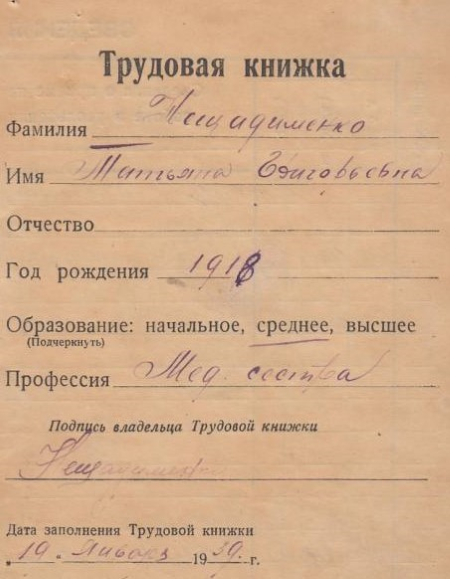 Трудовая книжка
Фамилия Нещадименко
Имя Татьяна Григорьевна
Отчество
Год рождения 1918
Образование: начальное, среднее, высшее
(Подчеркнуть)
Профессия Мед. сестра
Подпись владельца Трудовой книжки
Нещадименко
Дата заполнения Трудовой книжки
„19“ Января 1939 г.